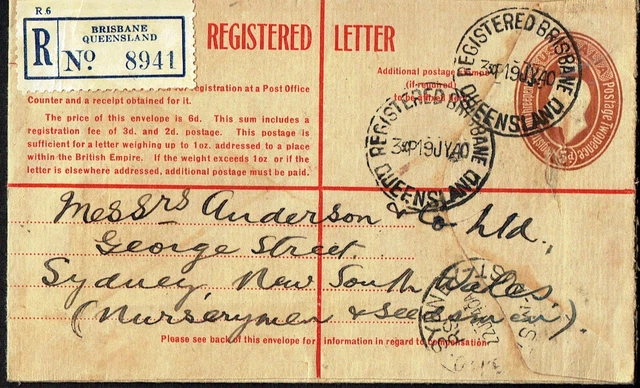 R.6
R
BRISBANE
QUEENSLAND
Nº 8941
REGISTERED LETTER
Additional postage
(if required)
to be
registration at a Post Office
Counter and a receipt obtained for it.
The price of this envelope is 6d. This sum includes a
registration fee of 3d. and 2d. postage. This postage is
sufficient for a letter weighing up to 1oz. addressed to a place
within the British Empire. If the weight exceeds 1oz or if the
letter is elsewhere addressed, additional postage must be paid.
REGISTERED BRISBANE
3-P 19 JY 40
QUEENSLAND
REGISTERED BRISBANE
3-P 19 JY 40
QUEENSLAND
Postage Twopence
Messrs Anderson & Co Ltd.,
George Street
Sydney, New South Wales.
(Nurserymen & Seedsmen).
Please see back of this envelope for information in regard to compensation